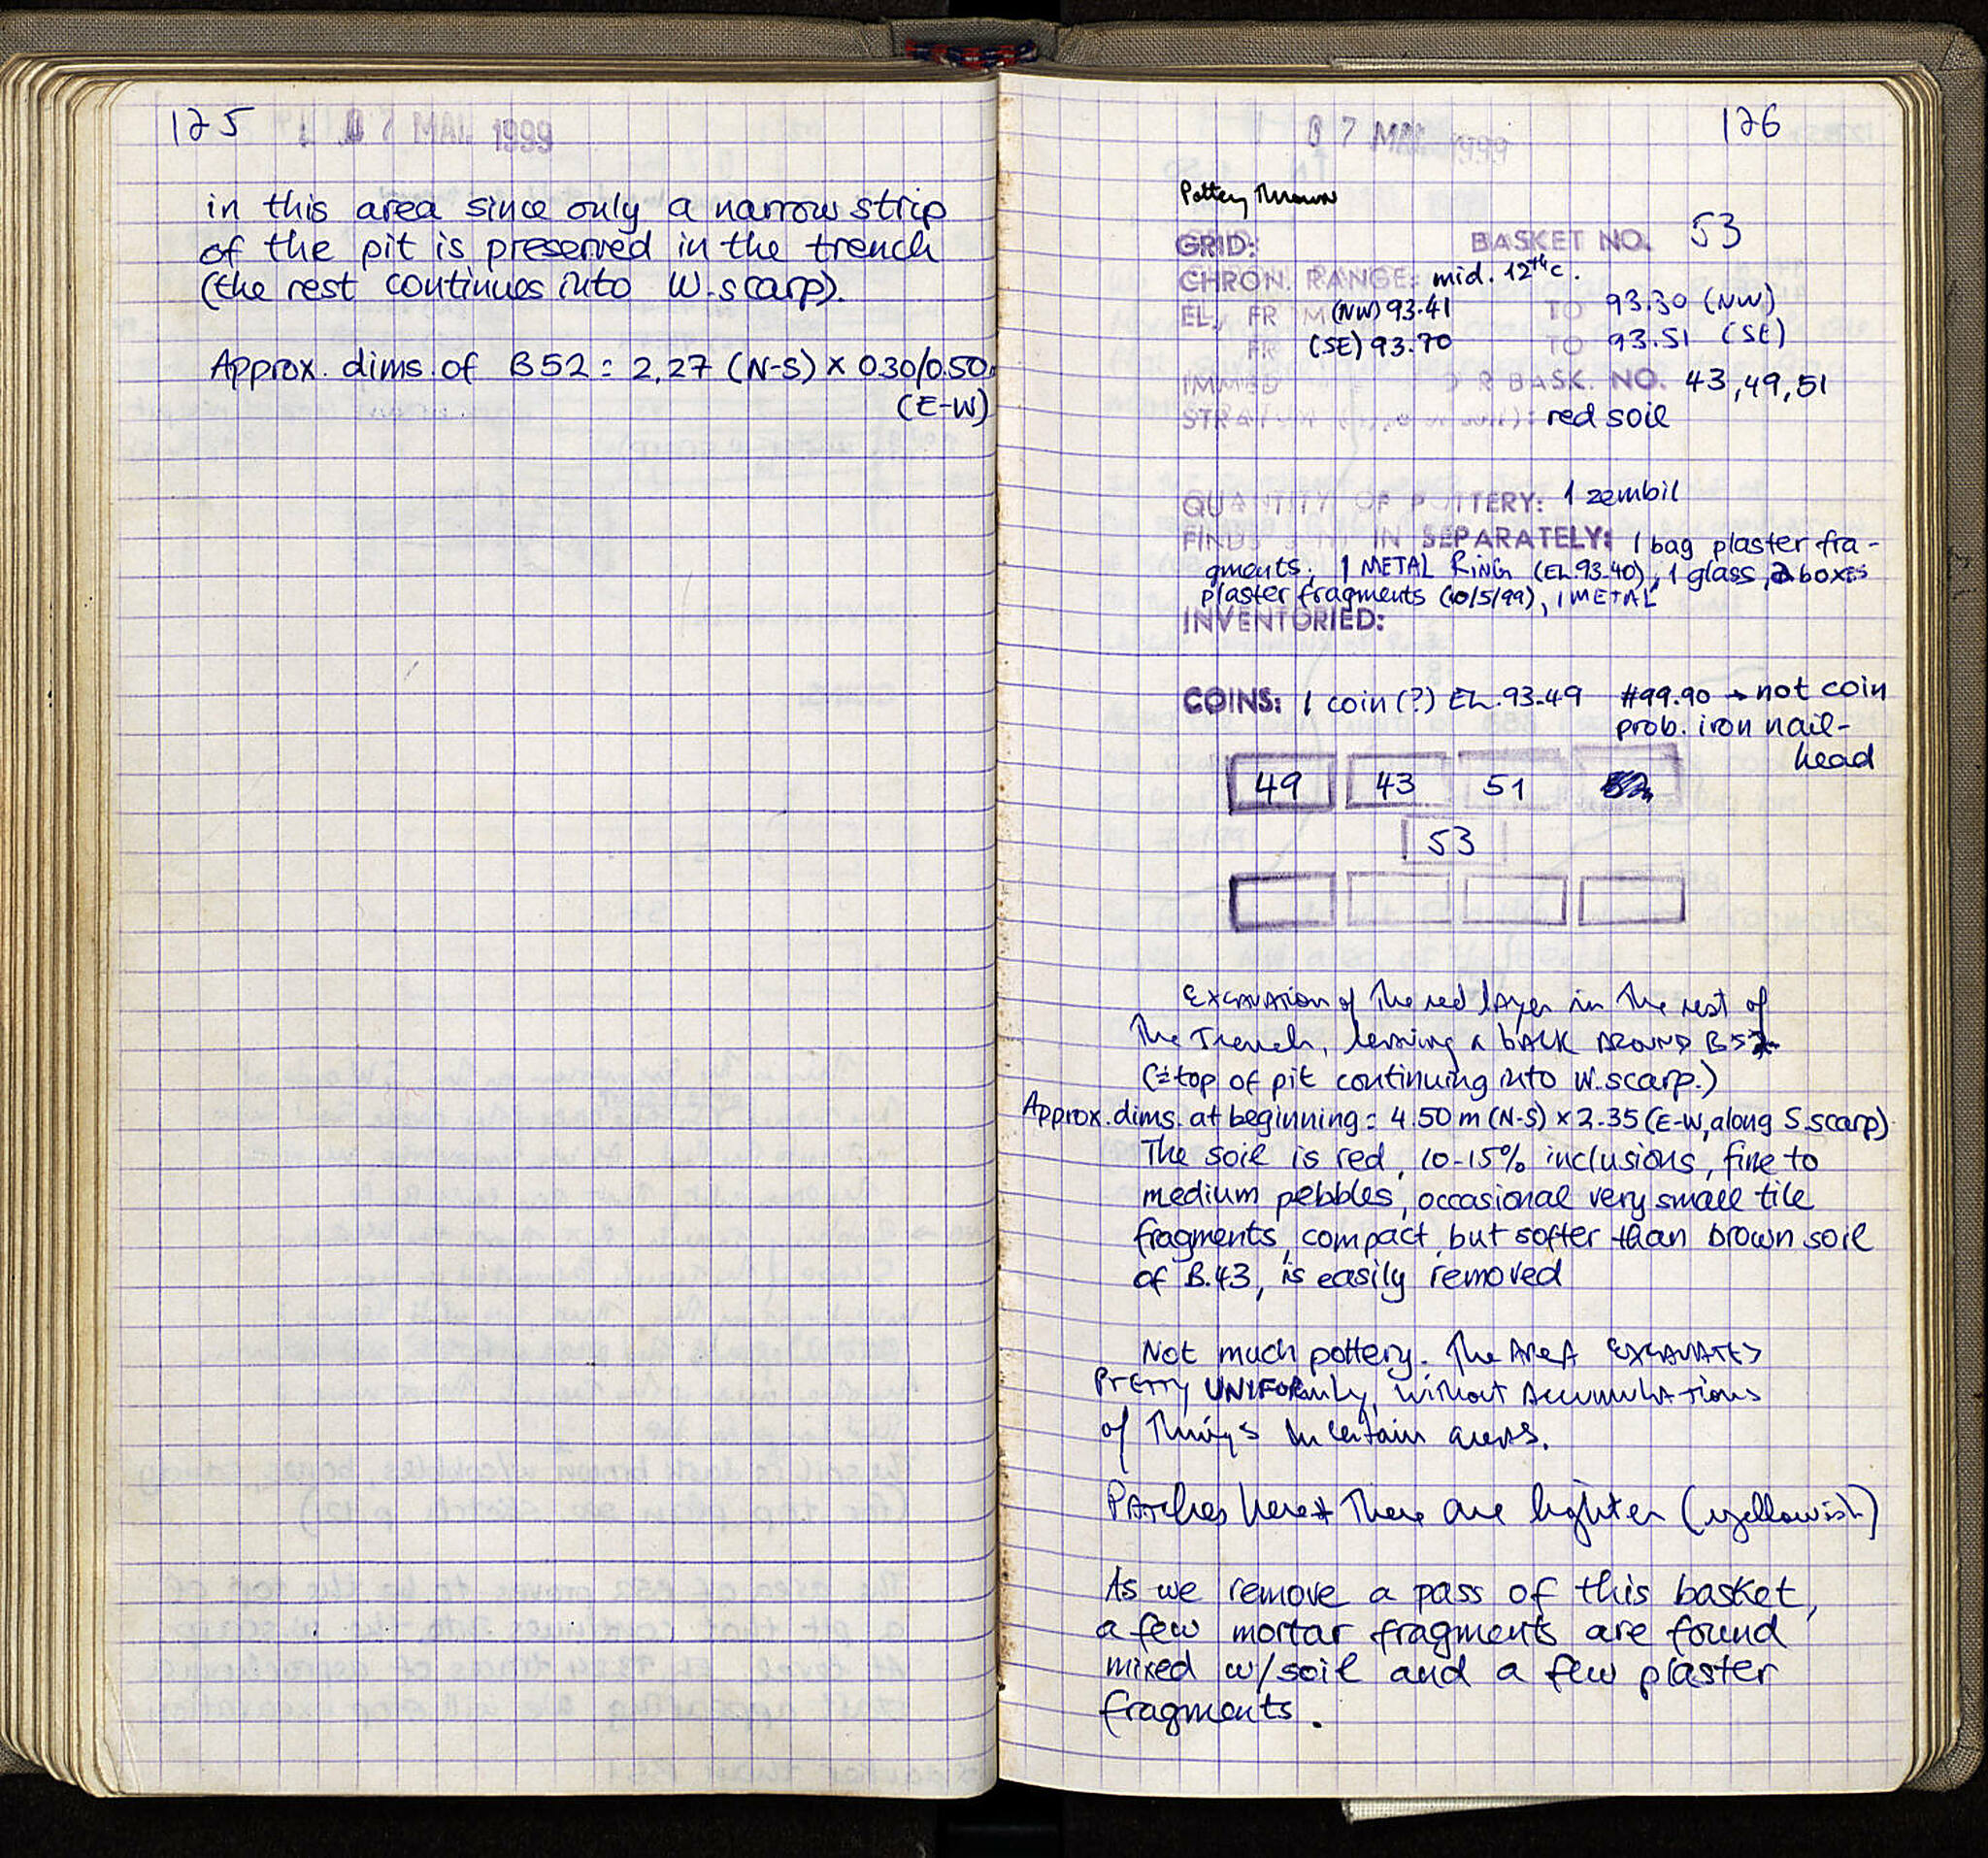 125
07 MAI 1999
in this area since only a narrow strip
of the pit is preserved in the trench
(the rest continues into W. scarp).
Approx. dims. of B52 = 2.27 (N-S) x 0.30/0.50
(E-W)
07 MAI 1999
126
Pottery Thrown
GRID: BASKET NO. 53
CHRON. RANGE: mid. 12th c.
EL, FROM (NW) 93.41 TO 93.30 (NW)
FR (SE) 93.70 TO 93.51 (SE)
IMMED BASK. NO. 43, 49, 51
STRATUM : red soil
QUANTITY OF POTTERY: 1 zembil
FINDS SENT IN SEPARATELY: 1 bag plaster fra-
gments, 1 METAL RING (EL. 93.40), 1 glass, 2 boxes
plaster fragments (10/5/99), 1 METAL
INVENTORIED:
COINS: 1 coin (?) EL. 93.49 #99.90 → not coin
prob. iron nail-
head
49 43 51
53
Excavation of the red layer in the rest of
the Trench, leaving a balk around B52
(=top of pit continuing into W. scarp.)
Approx. dims. at beginning = 4.50 m (N-S) x 2.35 (E-W, along S. scarp)
The soil is red, 10-15% inclusions, fine to
medium pebbles, occasional very small tile
fragments, compact, but softer than brown soil
of B.43, is easily removed
Not much pottery. The area excavates
pretty uniformly, without accumulations
of things in certain areas.
Patches here + there are lighter (yellowish)
As we remove a pass of this basket,
a few mortar fragments are found
mixed w/soil and a few plaster
fragments.